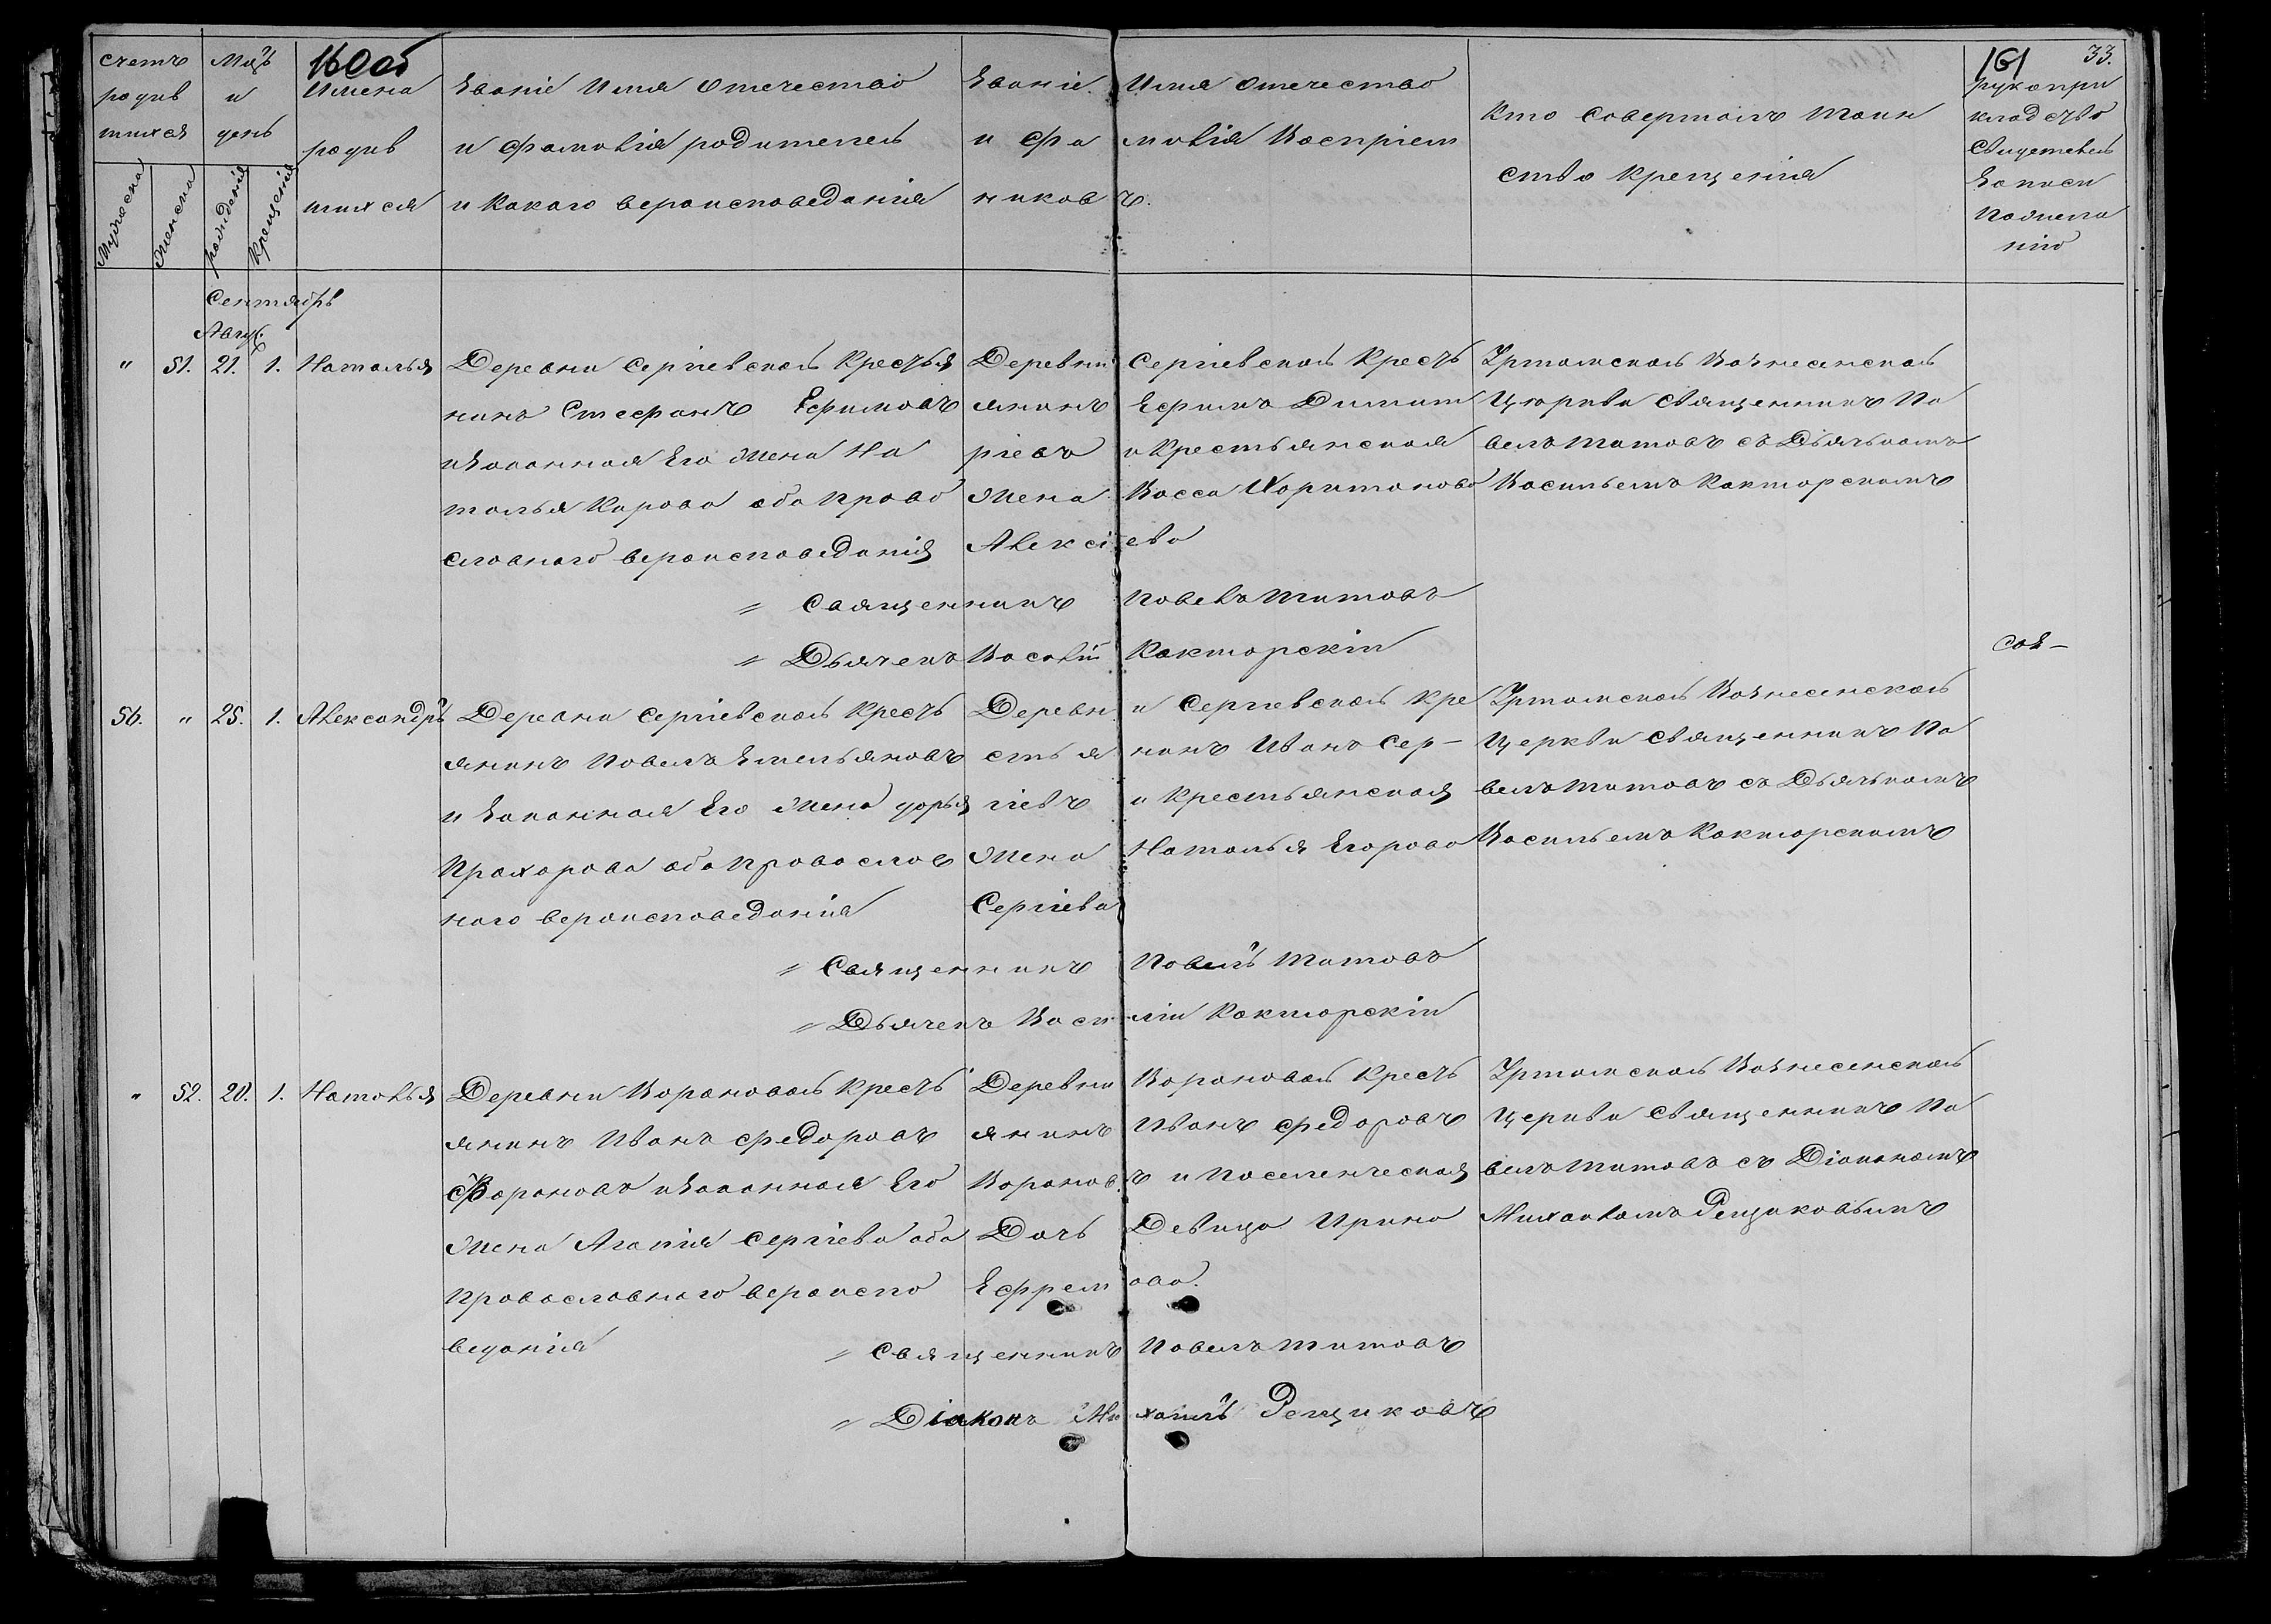 160об
161
33.
Счетъ родив шихся
Мужеска
Женска
Мцъ и день
рожденія
Крещенія
Имена родив шихся
Званіе Имя Отечество
и Фамилія родителей
и Какого вероисповеданія
Званіе Имя Отечество
и Фа милія Воспріем
никовъ.
Кто Совершалъ Таин
ство Крещенія
рукопри
кладство
Свидетелей
Записи
по желанію
Сентябрь
Авгус.
" 51. 21. 1. Наталья
Деревни Сергіевской Крестья
нинъ Стефанъ Ефимовъ
и Законная Его Жена На
талья Карпова оба Право
славного вероисповеданія
Деревни Сергіевской Кресть
янинъ Ефимъ Димит
ріевъ и Крестьянская
Жена Васса Харитонова
Алексіева
Уртамской Вознесенской
Церкви Священникъ Па
велъ Титовъ съ Дьячкомъ
Васильемъ Какторскимъ
" Священникъ Павелъ Титовъ
" Дьячекъ Василій Какторскій
Сов-
56. " 25. 1. Александръ
Деревни Сергіевской Кресть
янинъ Павелъ Емельяновъ
и Законная Его Жена дарья
Прохорова оба Православ
ного вероисповеданія
Деревни Сергіевской Кре
стьянинъ Иванъ Сер-
гіевъ и Крестьянская
Жена Наталья Егорова
Сергіева
Уртамской Вознесенской
Церкви Священникъ Па
велъ Титовъ съ Дьячкомъ
Васильемъ Какторскимъ
" Священникъ Павелъ Титовъ
" Дьячекъ Василій Какторскій
" 52. 20. 1. Наталья
Деревни Вороновой Кресть
янинъ Иванъ Федоровъ
Вороновъ и Законная Его
Жена Агапія Сергіева оба
православного вероиспо
веданія
Деревни Вороновой Кресть
янинъ Иванъ Федоровъ
Вороновъ и Поселенческая
Дочь Девица Ирина
Ефремова.
Уртамской Вознесенской
Церкви Священникъ Па
велъ Титовъ съ Діакономъ
Михаиломъ Рещиковымъ
" Священникъ Павелъ Титовъ
" Діаконъ Михаилъ Рещиковъ